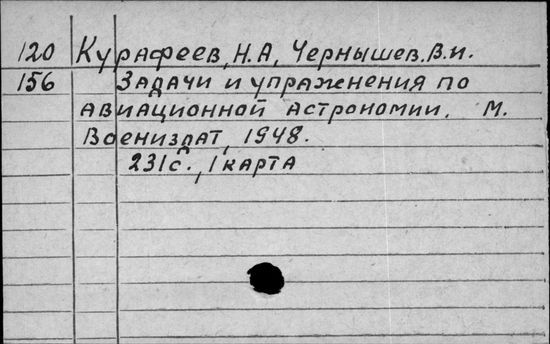 120 Курафеев, Н.А, Чернышев, В.И.
156 Задачи и упражнения по
авиационной астрономии. М.
Воениздат, 1948.
231с., 1 карта